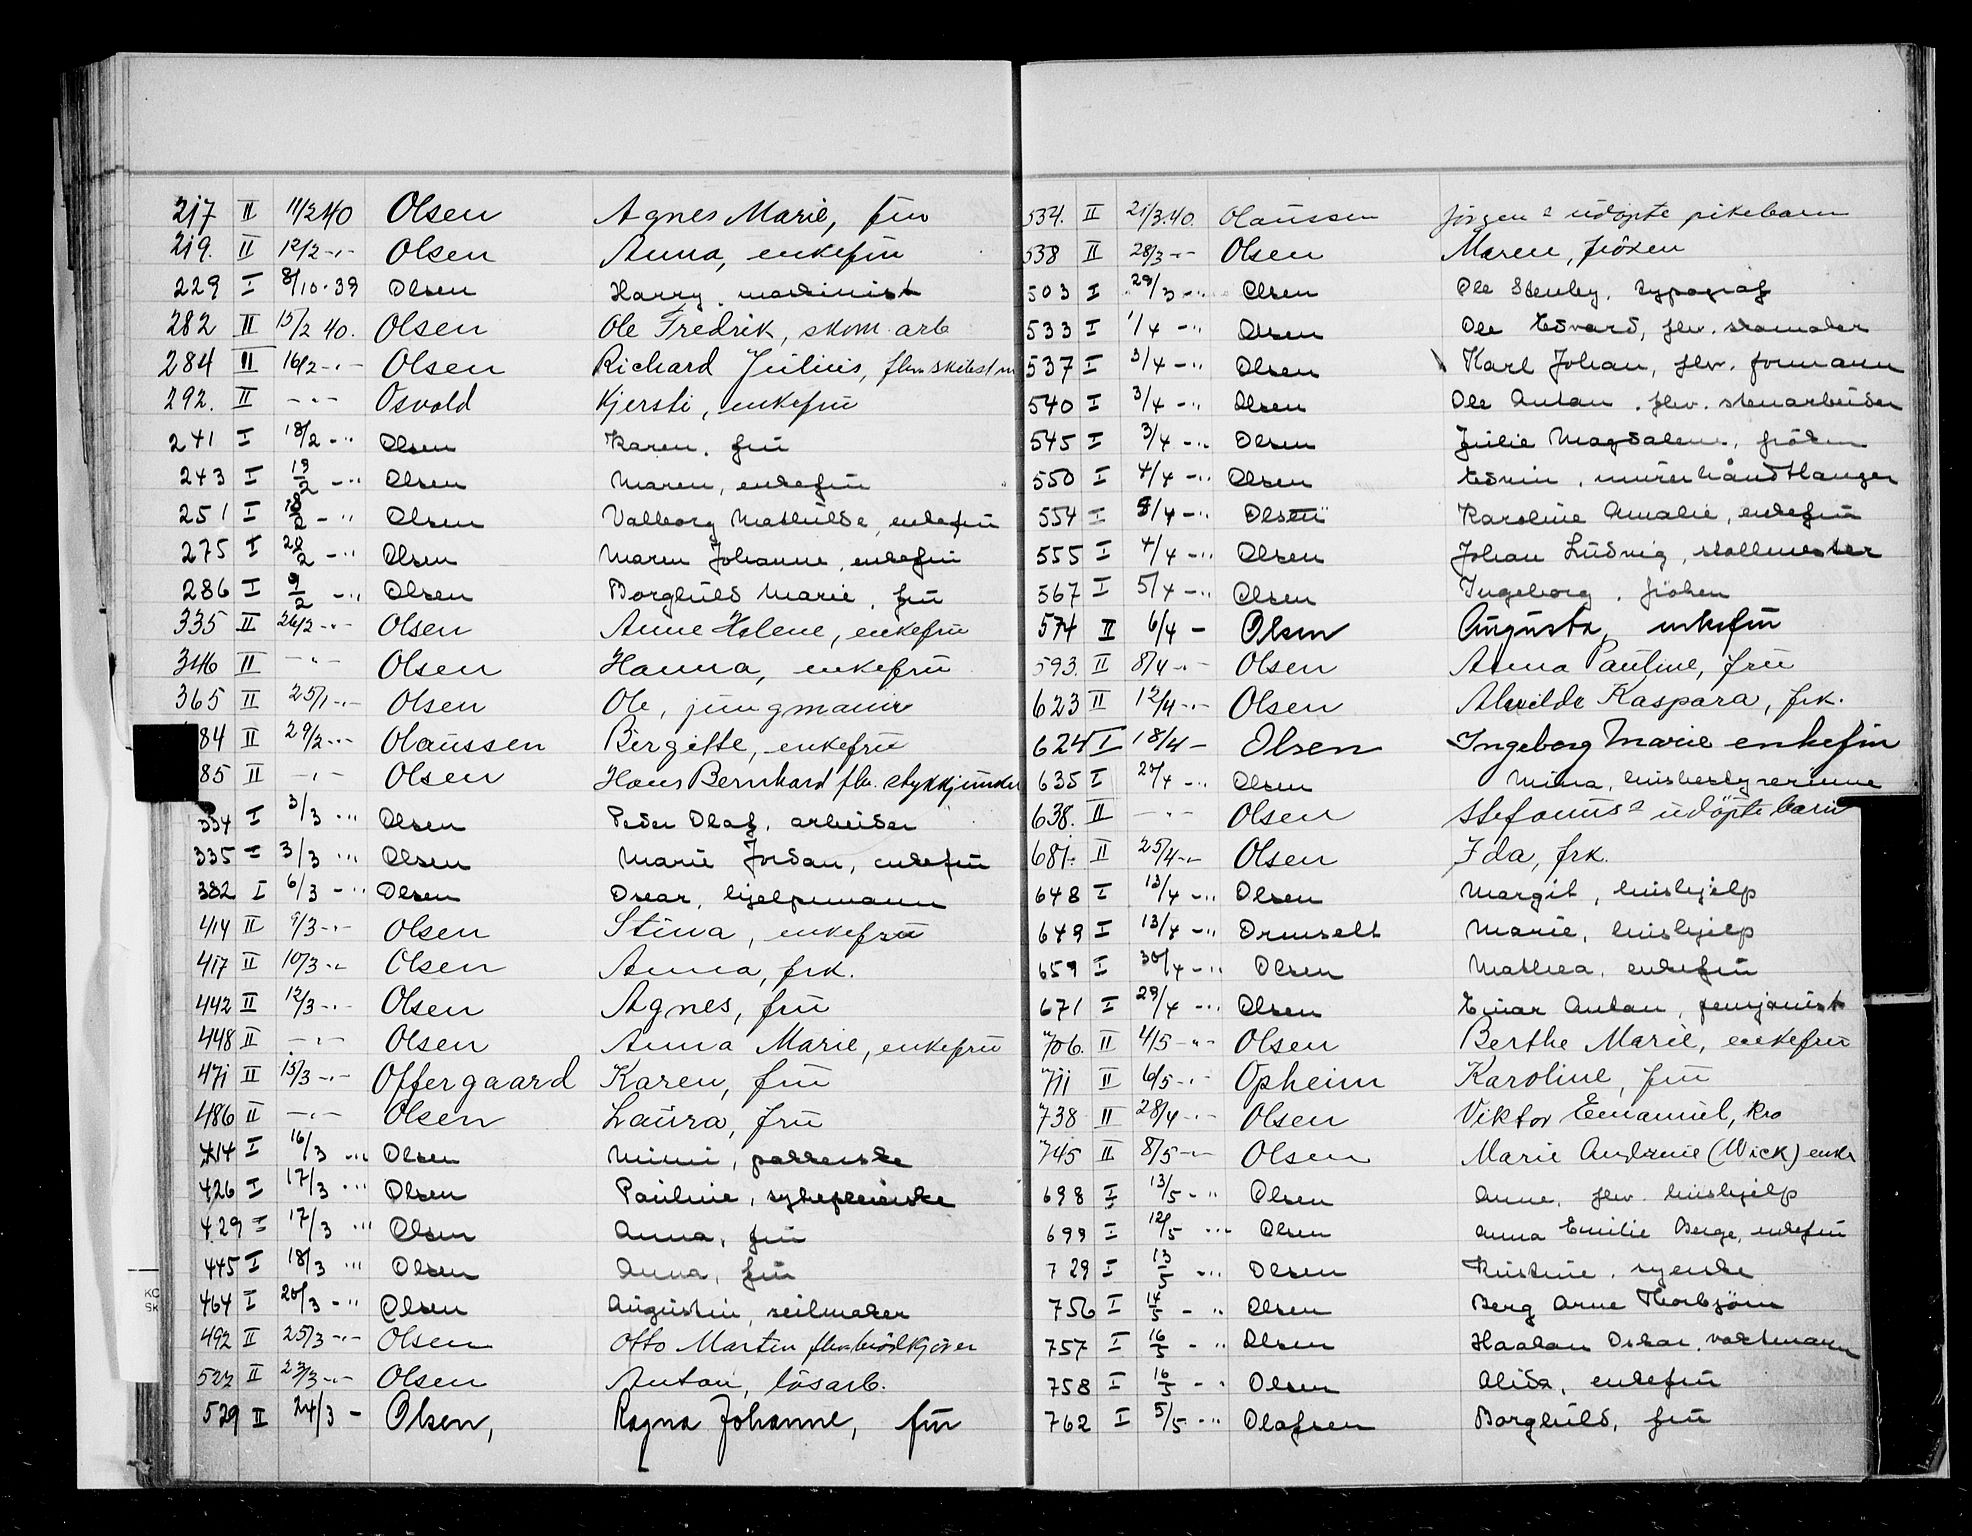 217 II 11/2 40 Olsen Agnes Marie, frü
219. II 12/2 -"- Olsen Anna, enkefrü
229 I 8/10.39 Olsen Harry, maskinist
282 II 15/2 40. Olsen Ole Fredrik, skom. arb
284 II 16/2 -"- Olsen Richard Jülius, fhv. skibstm
292. II -"- Osvold Kjersti, enkefrü
241 I 18/2 -"- Olsen Karen, frü
243 I 19/2 -"- Olsen Maren, enkefrü
251 I 18/2 -"- Olsen Valborg Mathilde, enkefrü
275 I 20/2 -"- Olsen Maren Johanne, enkefrü
286 I 9/2 -"- Olsen Borghild Marie, frü
335 II 26/2 -"- Olsen Anne Helene, enkefrü
346 II -"- Olsen Hanna, enkefrü
365 II 25/1 -"- Olsen Ole, jüngmann
84 II 29/2 -"- Olaüssen Birgitte, enkefrü
85 II -"- Olsen Hans Bernhard fhv. stykkjünker
334 I 3/3 -"- Olsen Peder Olaf, arbeider
335 I 3/3 -"- Olsen Marie Jordan, enkefrü
382 I 6/3 -"- Olsen Oscar, hjelpemann
414 II 9/3 -"- Olsen Stina, enkefrü
417 II 10/3 -"- Olsen Anna, frk.
442 II 12/3 -"- Olsen Agnes, frü
448 II -"- Olsen Anna Marie, enkefrü
471 II 15/3 -"- Offergaard Karen, frü
486 II -"- Olsen Laüra, frü
414 I 16/3 -"- Olsen Mimi, pakkerske
426 I 17/3 -"- Olsen Pauline, sykepleierske
429 I 17/3 -"- Olsen Anna, frü
445 I 18/3 -"- Olsen Anna, frü
464 I 20/3 -"- Olsen Aügüstin, seilmaker
492 II 25/3 -"- Olsen Otto Martin fhv. brödkjörer
522 II 23/3 -"- Olsen Anton, lösarb.
529 II 24/3 - Olsen, Ragna Johanne, frü
534. II 21/3.40. Olaüssen Jörgens üdöpte pikebarn
538 II 28/3 -"- Olsen Maren, fröken
503 I 29/3 -"- Olsen Ole Stenby, typograf
533 I 1/4 -"- Olsen Ole Edvard, fhv. skomaker
537 I 3/4 -"- Olsen Karl Johan, fhv. formann
540 I 3/4 -"- Olsen Ole Anton, fhv. stenarbeider
545 I 3/4 -"- Olsen Jülie Magdalene, fröken
550 I 4/4 -"- Olsen Edvin, mürerhåndtlanger
554 I 8/4 -"- Olsen Karoline Amalie, enkefrü
555 I 4/4 -"- Olsen Johan Lüdvig, stallmester
567 I 5/4 -"- Olsen Ingeborg, fröken
574 II 6/4 - Olsen Aügüsta, enkefrü
593. II 8/4 -"- Olsen Anna Paüline, frü
623 II 12/4 -"- Olsen Alvilde Kaspara, frk.
624 I 18/4 - Olsen Ingeborg Marie enkefrü
635 I 20/4 -"- Olsen Mina, hüsbestyrerinne
638. II -"- Olsen Stefanüs üdöpte barn
681. II 25/4 -"- Olsen Ida, frk.
648 I 13/4 -"- Olsen Margit, hüshjelp
649 I 13/4 -"- Ormselt Marie, hüshjelp
659 I 30/4 -"- Olsen Mathea, enkefrü
671 I 29/4 -"- Olsen Einar Anton, pensjonist
706. II 4/5 -"- Olsen Berthe Marie, enkefrü
711 II 6/5 -"- Opheim Karoline, frü
738 II 28/4 -"- Olsen Viktor Emanuel, kro
745 II 8/5 -"- Olsen Marie Andrine (Wick) enke
698 I 13/5 -"- Olsen Anne, fhv. hüshjelp
699 I 12/5 -"- Olsen Anna Emilie Berge, enkefrü
729 I 13/5 -"- Olsen Kristine, syerske
756 I 14/5 -"- Olsen Berg Arne Thorbjörn
757 I 16/5 -"- Olsen Haakon Oskar, vaktmann
758 I 16/5 -"- Olsen Alida, enkefrü
762 I 5/5 -"- Olafsen Borghild, frü